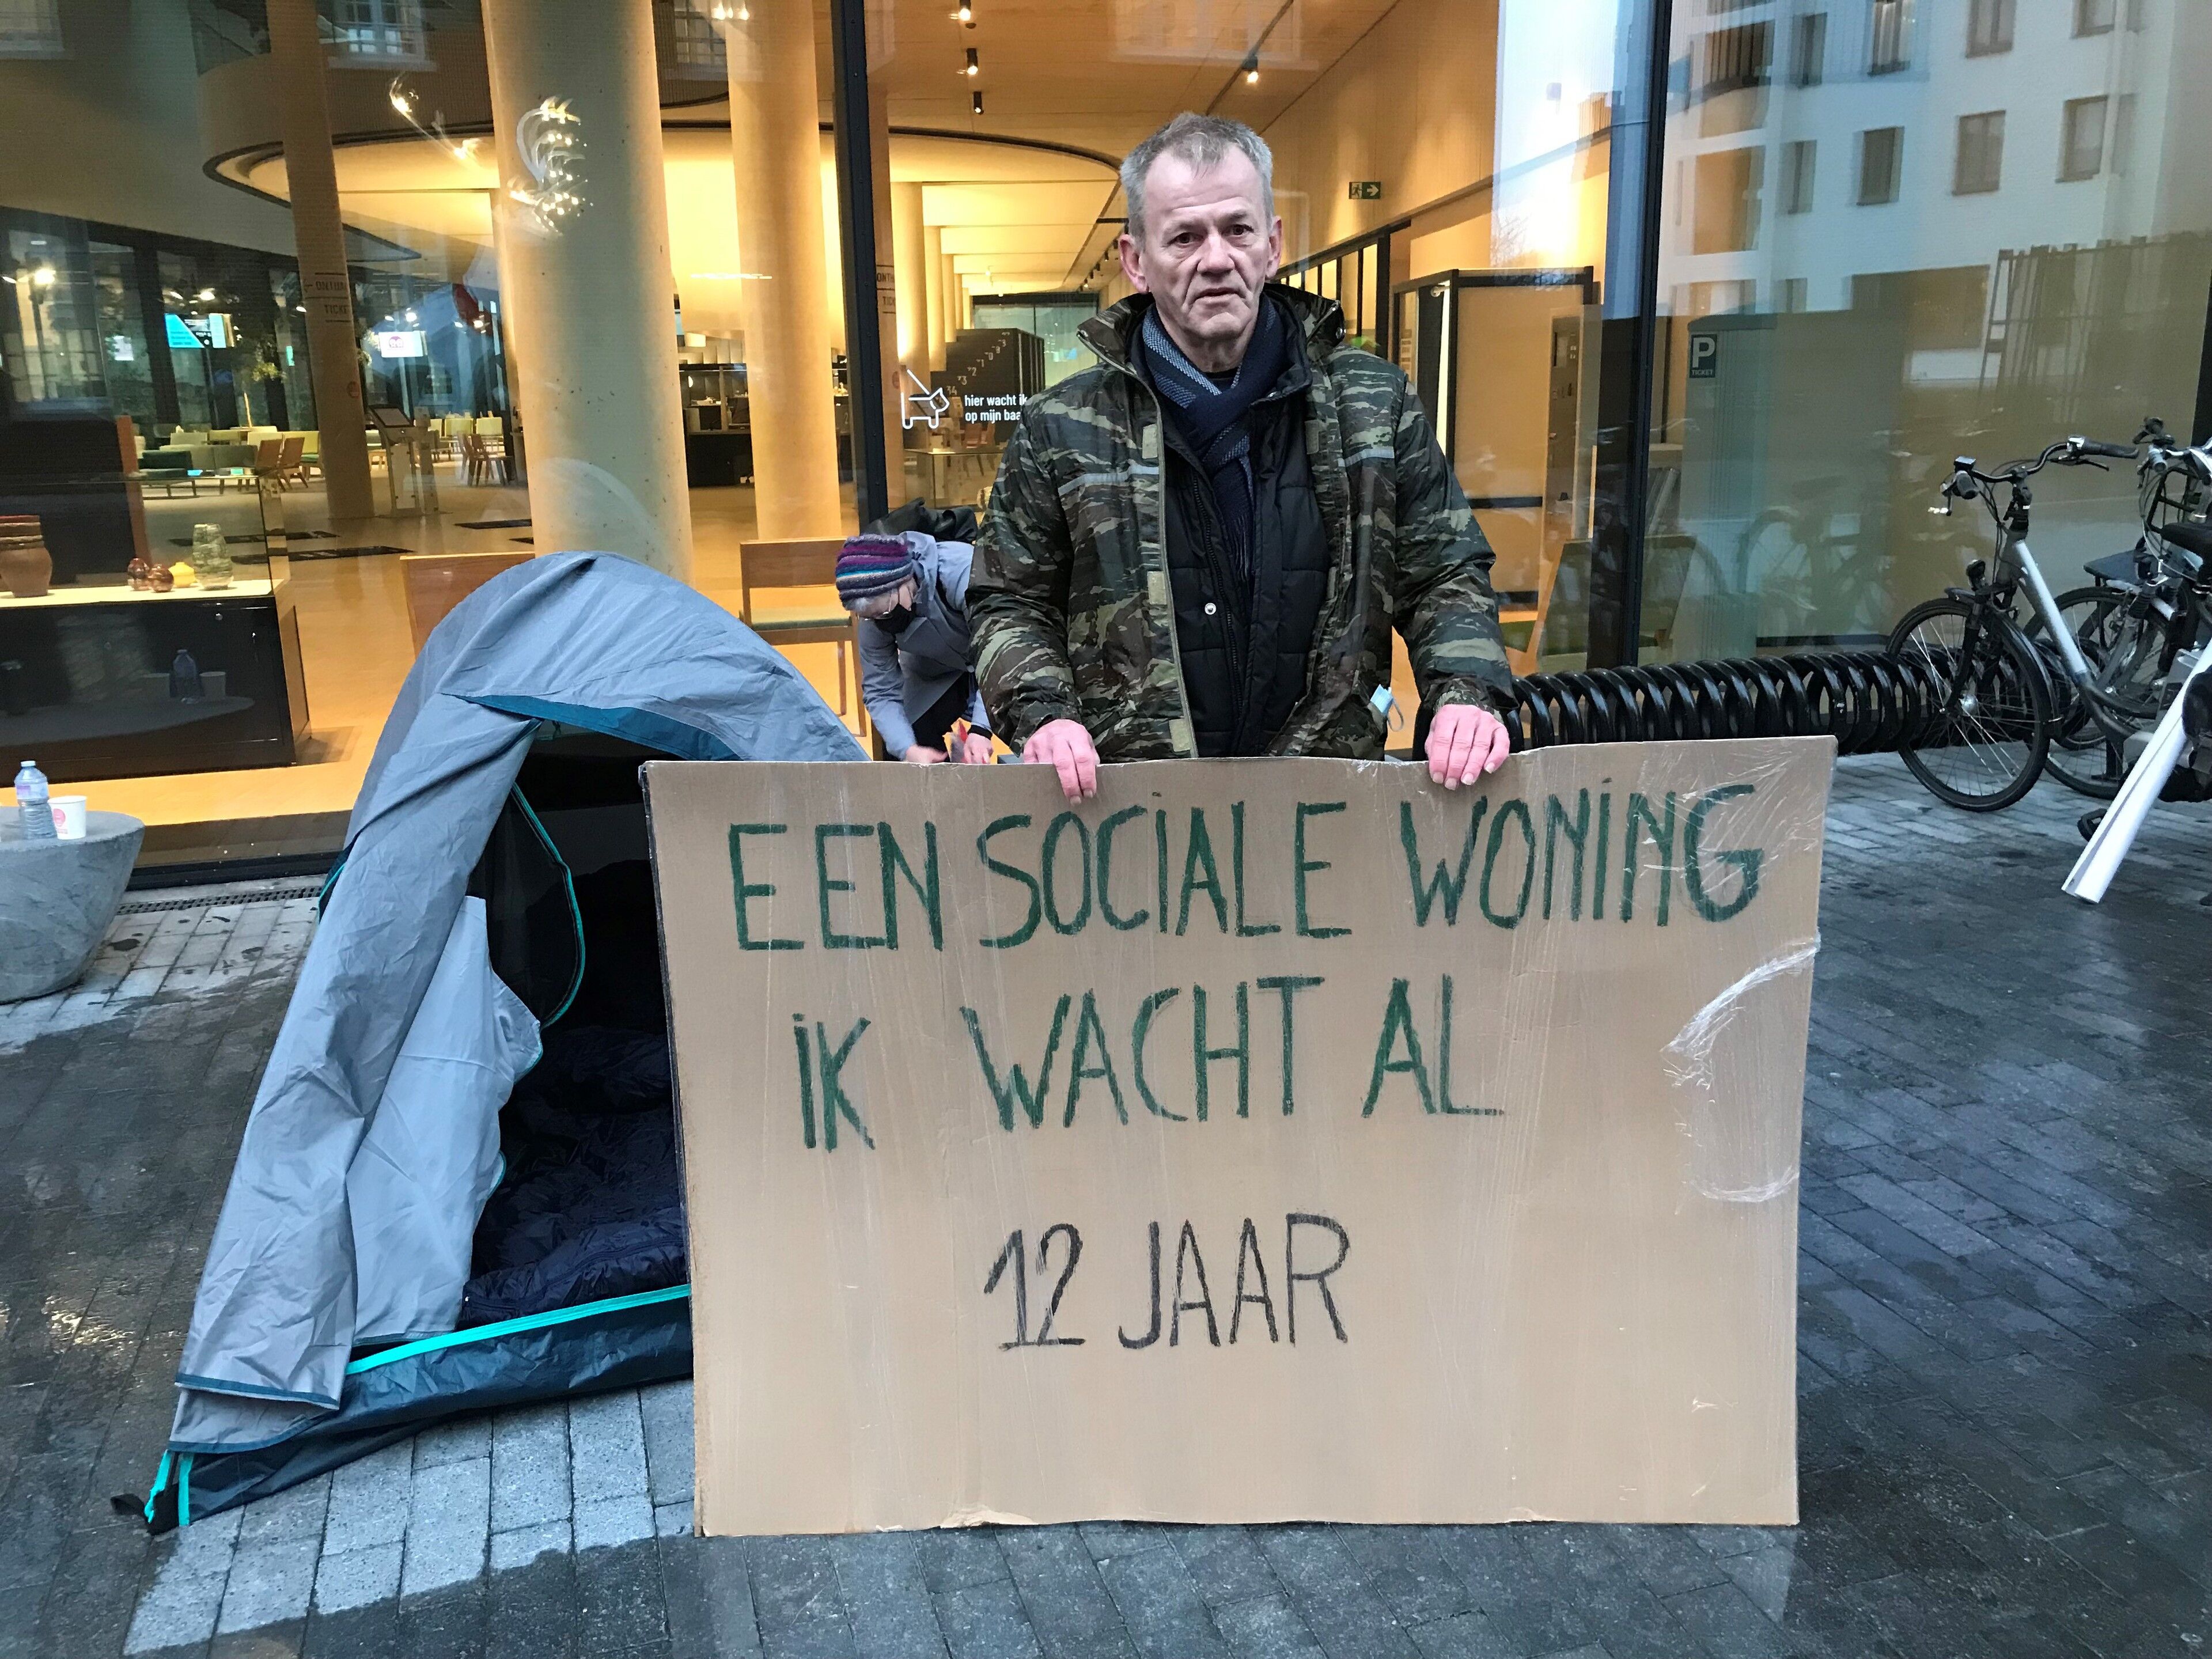 hier wacht ik
op mijn baa
P
TICKET
EEN SOCiALE WONiNG
iK WACHT AL
12 JAAR